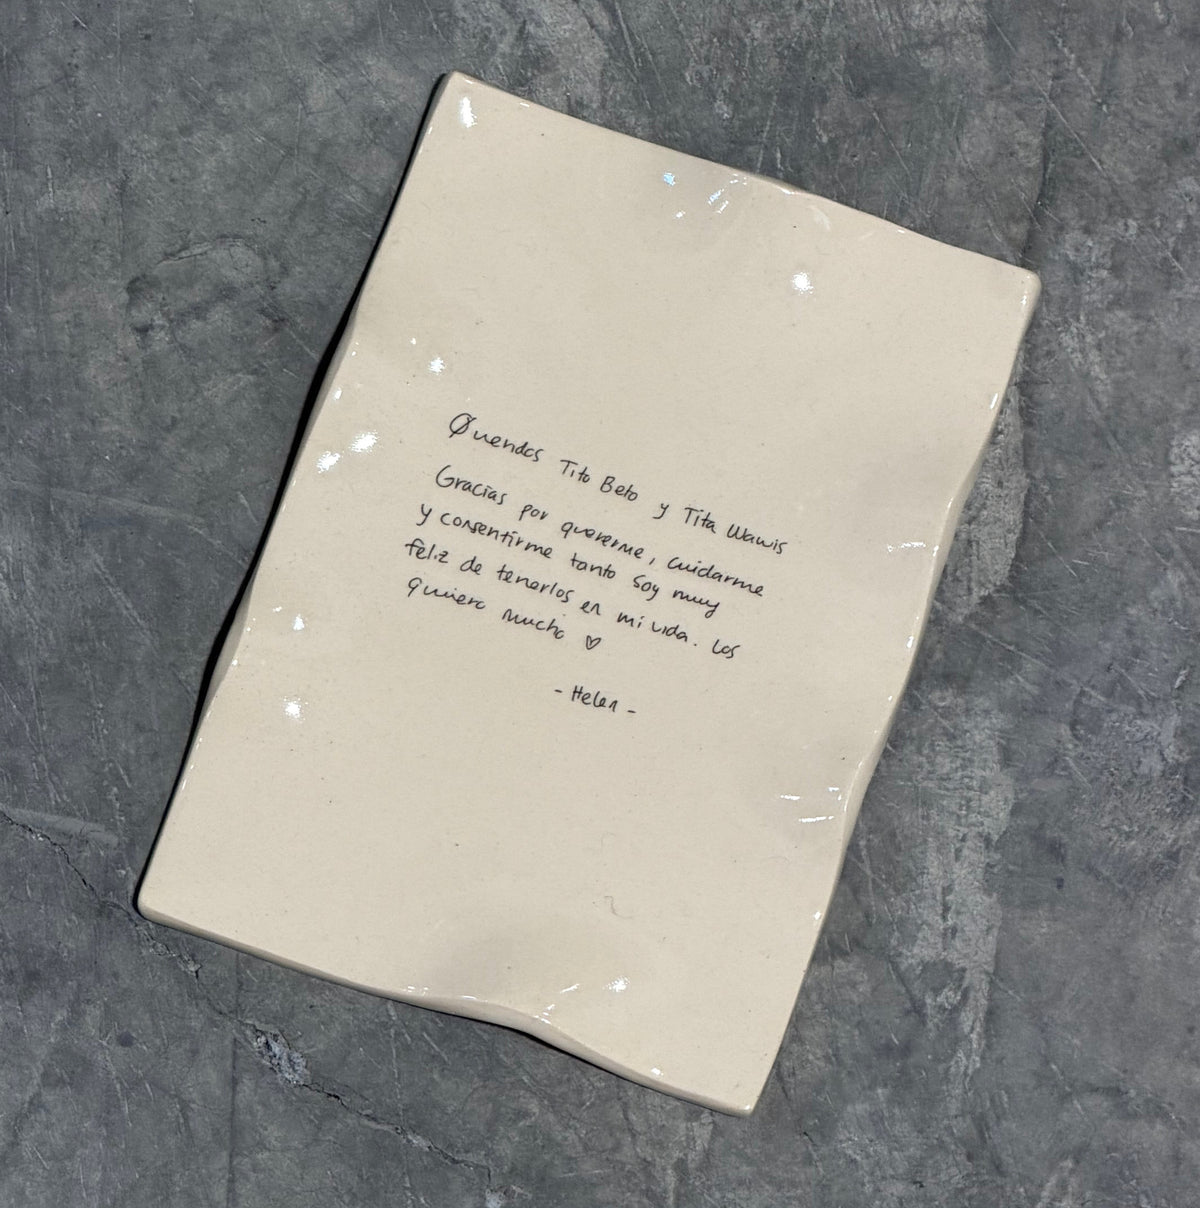 Queridos Tito Beto y Tita Wawis
Gracias por quererme, cuidarme
y consentirme tanto soy muy
feliz de tenerlos en mi vida. Los
quiero mucho ♡
- Helen -